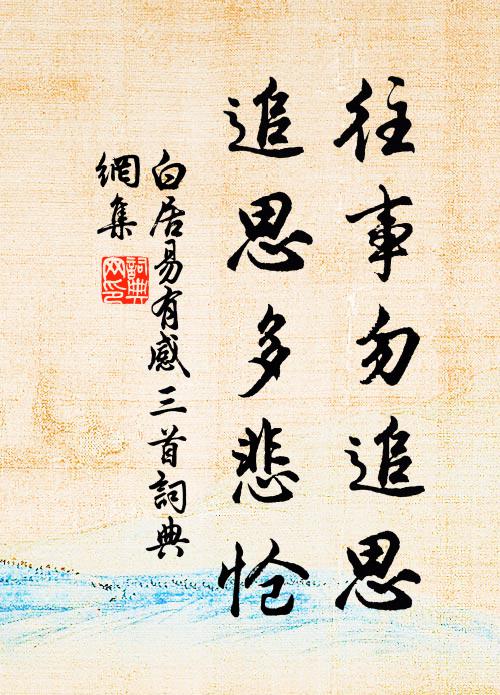 往事勿追思
追思多悲愴
白居易有感三首詞典
網集
詞典
网印